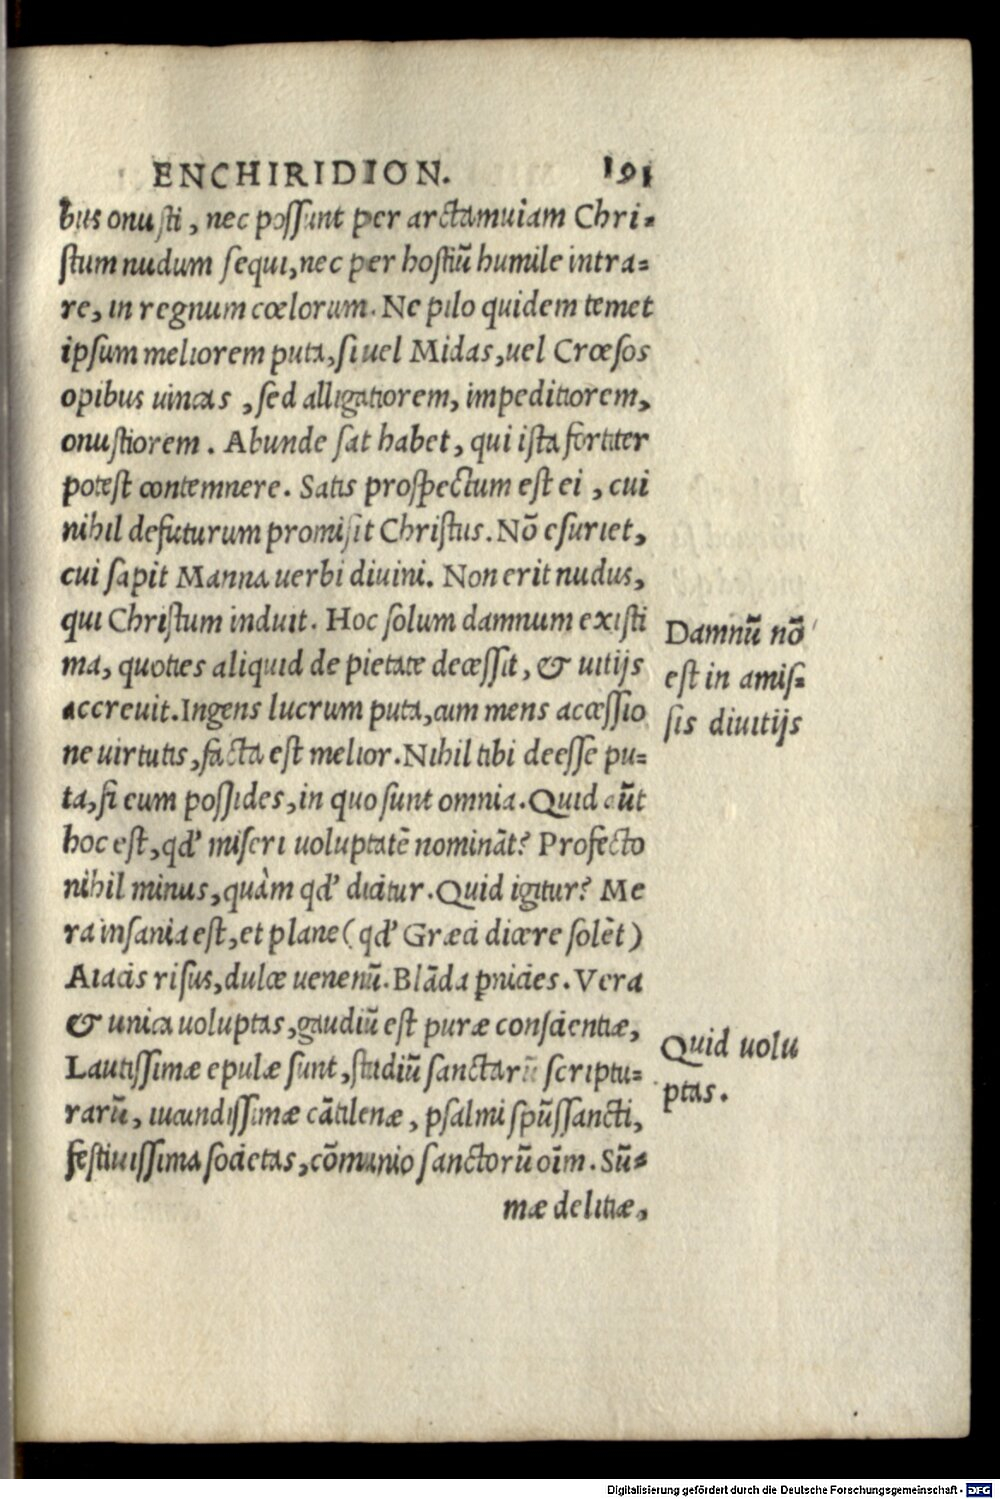 ENCHIRIDION. 191
bus onusti, nec possunt per arctam uiam Chri-
stum nudum sequi, nec per hostiũ humile intra-
re, in regnum cœlorum. Ne pilo quidem temet
ipsum meliorem puta, si uel Midas, uel Crœsos
opibus uincas, sed alligatiorem, impeditiorem,
onustiorem. Abunde sat habet, qui ista fortiter
potest contemnere. Satis prospectum est ei, cui
nihil defuturum promisit Christus. Nõ esuriet,
cui sapit Manna uerbi diuini. Non erit nudus,
qui Christum induit. Hoc solum damnum existi
ma, quoties aliquid de pietate decessit, & uitijs
accreuit. Ingens lucrum puta, cum mens accessio
ne uirtutis, facta est melior. Nihil tibi deesse pu-
ta, si eum possides, in quo sunt omnia. Quid aũt
hoc est, qd' miseri uoluptatẽ nominãt? Profecto
nihil minus, quàm qd' dicitur. Quid igitur? Me
ra insania est, et plane (qd' Græci dicere solẽt)
Aiacis risus, dulce uenenũ. Blãda ꝑnicies. Vera
& unica uoluptas, gaudiũ est puræ conscientiæ,
Lautissimæ epulæ sunt, studiũ sanctarũ scriptu-
rarũ, iucundissimæ cãtilenæ, psalmi spũssancti,
festiuissima societas, cõmunio sanctorũ oĩm. Sũ-
mæ delitiæ,
Damnũ nõ
est in amis-
sis diuitijs
Quid uolu
ptas.
Digitalisierung gefördert durch die Deutsche Forschungsgemeinschaft - DFG